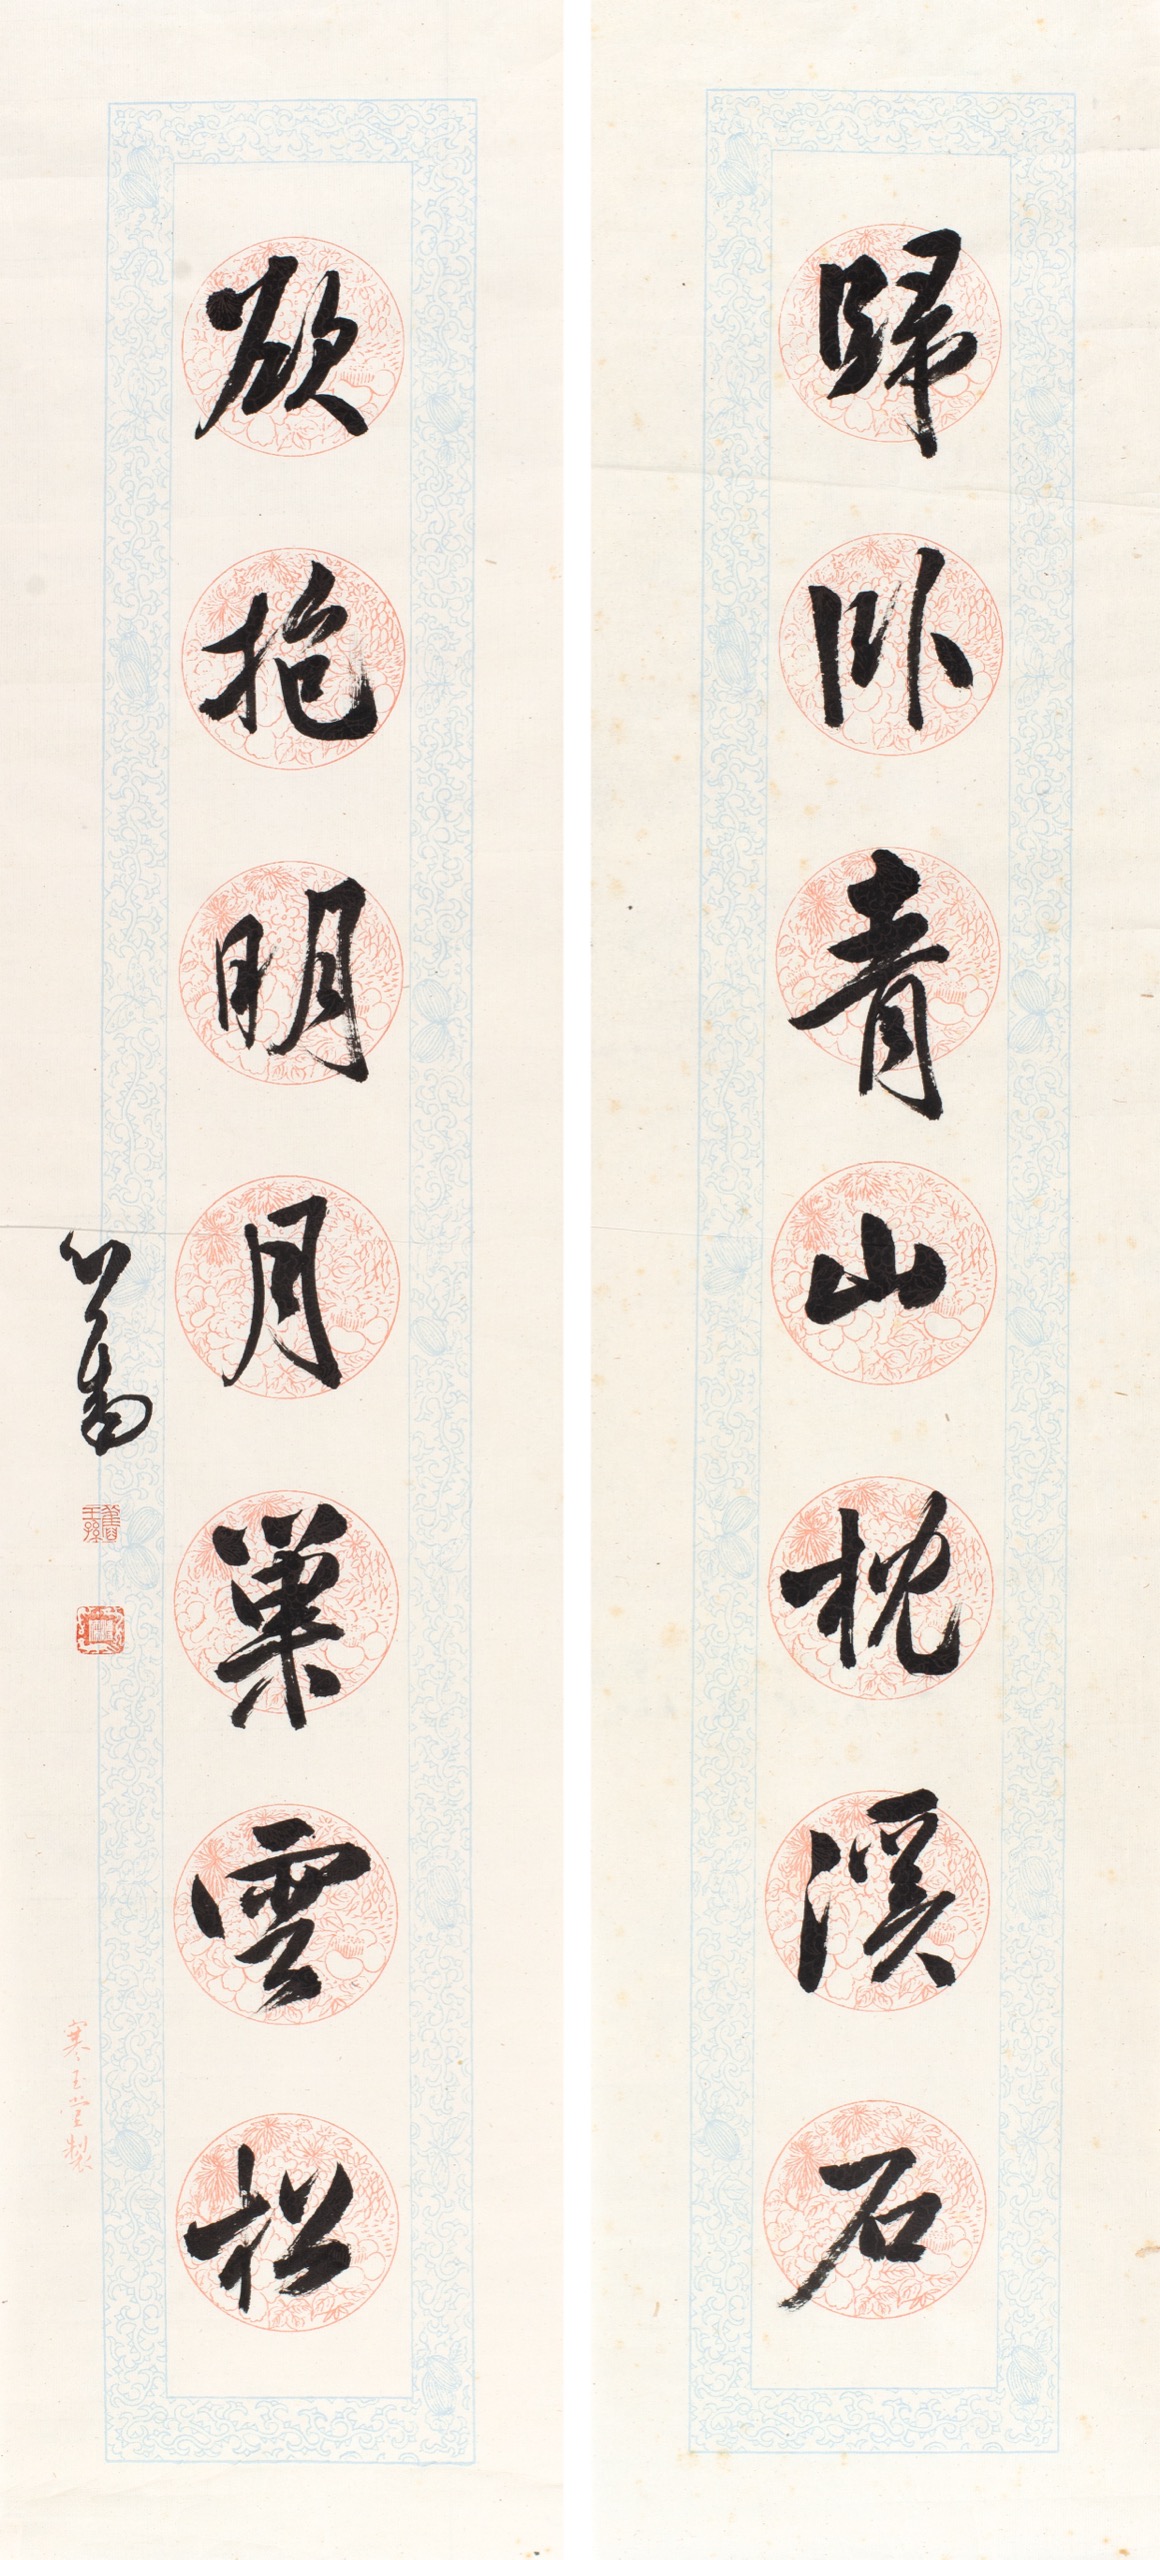 歸卧青山枕溪石
欲抱明月巢雲松
心畬
舊王孫
寒玉堂製